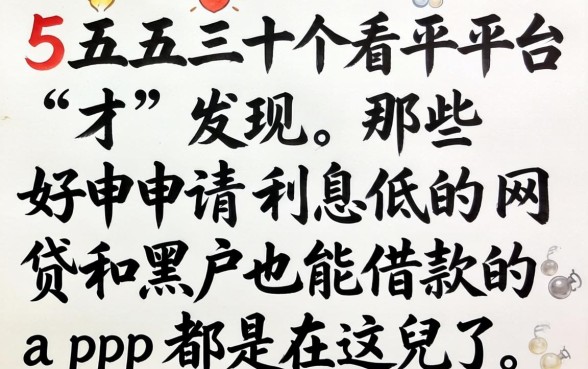 5五五三十个看平平台
“才”发现。那些
好申申请利息低的网
贷和黑户也能借款的
a ppp 都是在这兒了。